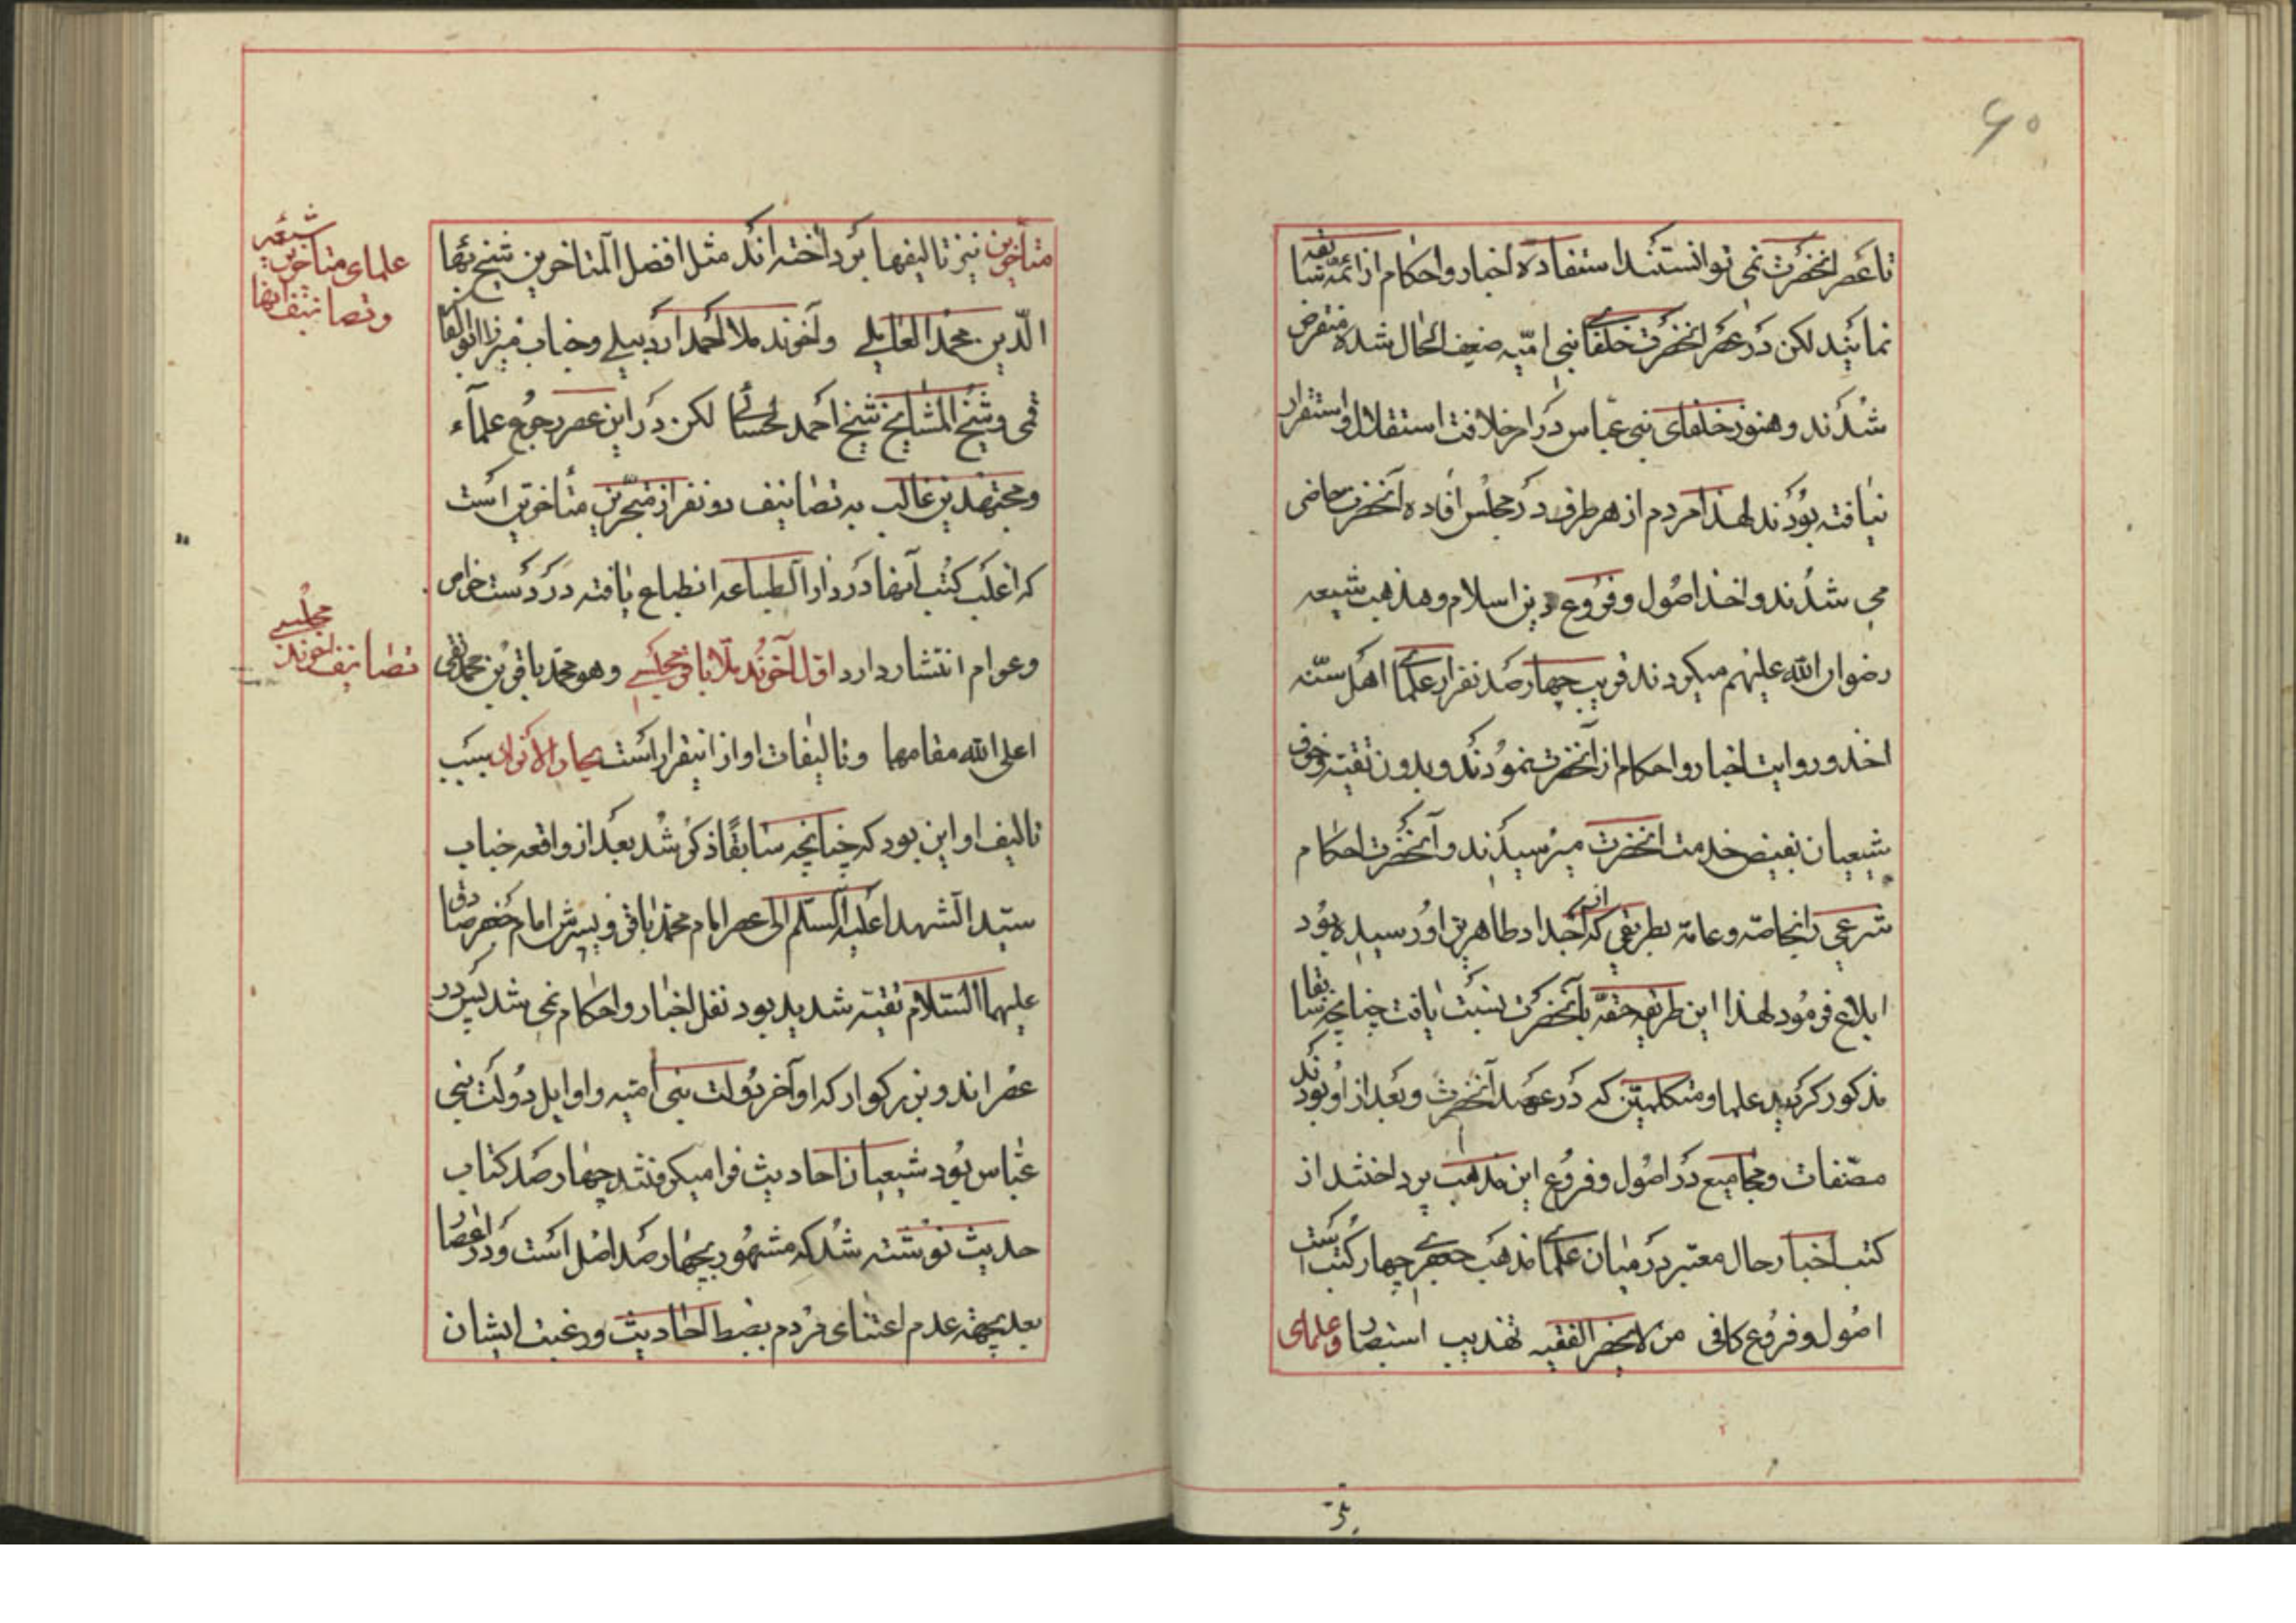 ۶۰
تا عصر انحضرت نمی توانستند استفاده اخبار و احکام از ائمه سابقه
نمایند لکن در عصر انحضرت خلفای بنی امیّه ضعیف الحال شده منقرض
شدند و هنوز خلفای بنی عباس در امر خلافت استقلال و استقرار
نیافته بودند لهذا مردم از هر طرف در مجلس افاده آنحضرت حاضر
می شدند و اخذ اصول و فروع دین اسلام و مذهب شیعه
رضوان الله علیهم میکردند قریب چهار صد نفر از علمای اهل سنّه
اخذ و روایت اخبار و احکام از آنحضرت نمودند و بدون تقیّه و خوف
شیعیان بفیض خدمت انحضرت میرسیدند و آنحضرت احکام
شرعی را بخاصّه و عامّه بطریقی که از اجداد طاهرین او رسیده بود
ابلاغ فرمود لهذا این طریقه حقّه بآنحضرت نسبت یافت چنانچه سابقا
مذکور گردید علما و متکلمین که در عهد آنحضرت و بعد از او بودند
مصنّفات و مجامیع در اصول و فروع این مذهب پرداختند از
کتب اخبار حال معتبر در میان علمای مذهب جعفری چهار کتب است
اصول و فروع کافی من لایحضر الفقیه تهذیب استبصار و علمای
متأخرین نیز تالیفها پرداخته اند مثل افضل المتاخرین شیخ بهاء
الدّین محمد العاملی و آخوند ملا احمد اردبیلی و جناب میرزا ابوالقاسم
قمی و شیخ المشایخ شیخ احمد لحسائی لکن در این عصر رجوع علمآء
و مجتهدین غالب به تصانیف دو نفر از متبحّرین متأخرین است
که اغلب کتب آنها در دار الطباعه انطباع یافته در دست خواص
و عوام انتشار دارد اول آخوند ملا باقر مجلسی و هو محمد باقر بن محمد تقی
اعلی الله مقامهما و تالیفات او از اینقرار است بحار الانوار سبب
تالیف او این بود که چنانچه سابقًا ذکر شد بعد از واقعه جناب
سیّد الشهدا علیه السلم الی عصر امام محمد باقر و پسرش امام جعفر صادق
علیهما السّلام تقیّه شدید بود نقل اخبار و احکام نمی شد پس در
عصر اندو بزرگوار که اواخر دولت بنی امیه و اوایل دولت بنی
عبّاس بود شیعیان احادیث فرا میکرفتند چهار صد کتاب
حدیث نوشته شد که مشهور بچهار صد اصل است و در اعصار
بعد بجهة عدم اعتنای مردم بضبط احادیث و رغبت ایشان
علمای متأخرین شیعه
و تصانیف آنها
تصانیف آخوند مجلسی